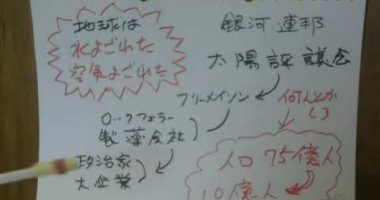 地球は
水よごれた
空気よごれた
銀河連邦
太陽評議会
フリーメイソン
何んとかしろ
ロックフェラー
製薬会社
政治家
大企業
人口75億人
10億人